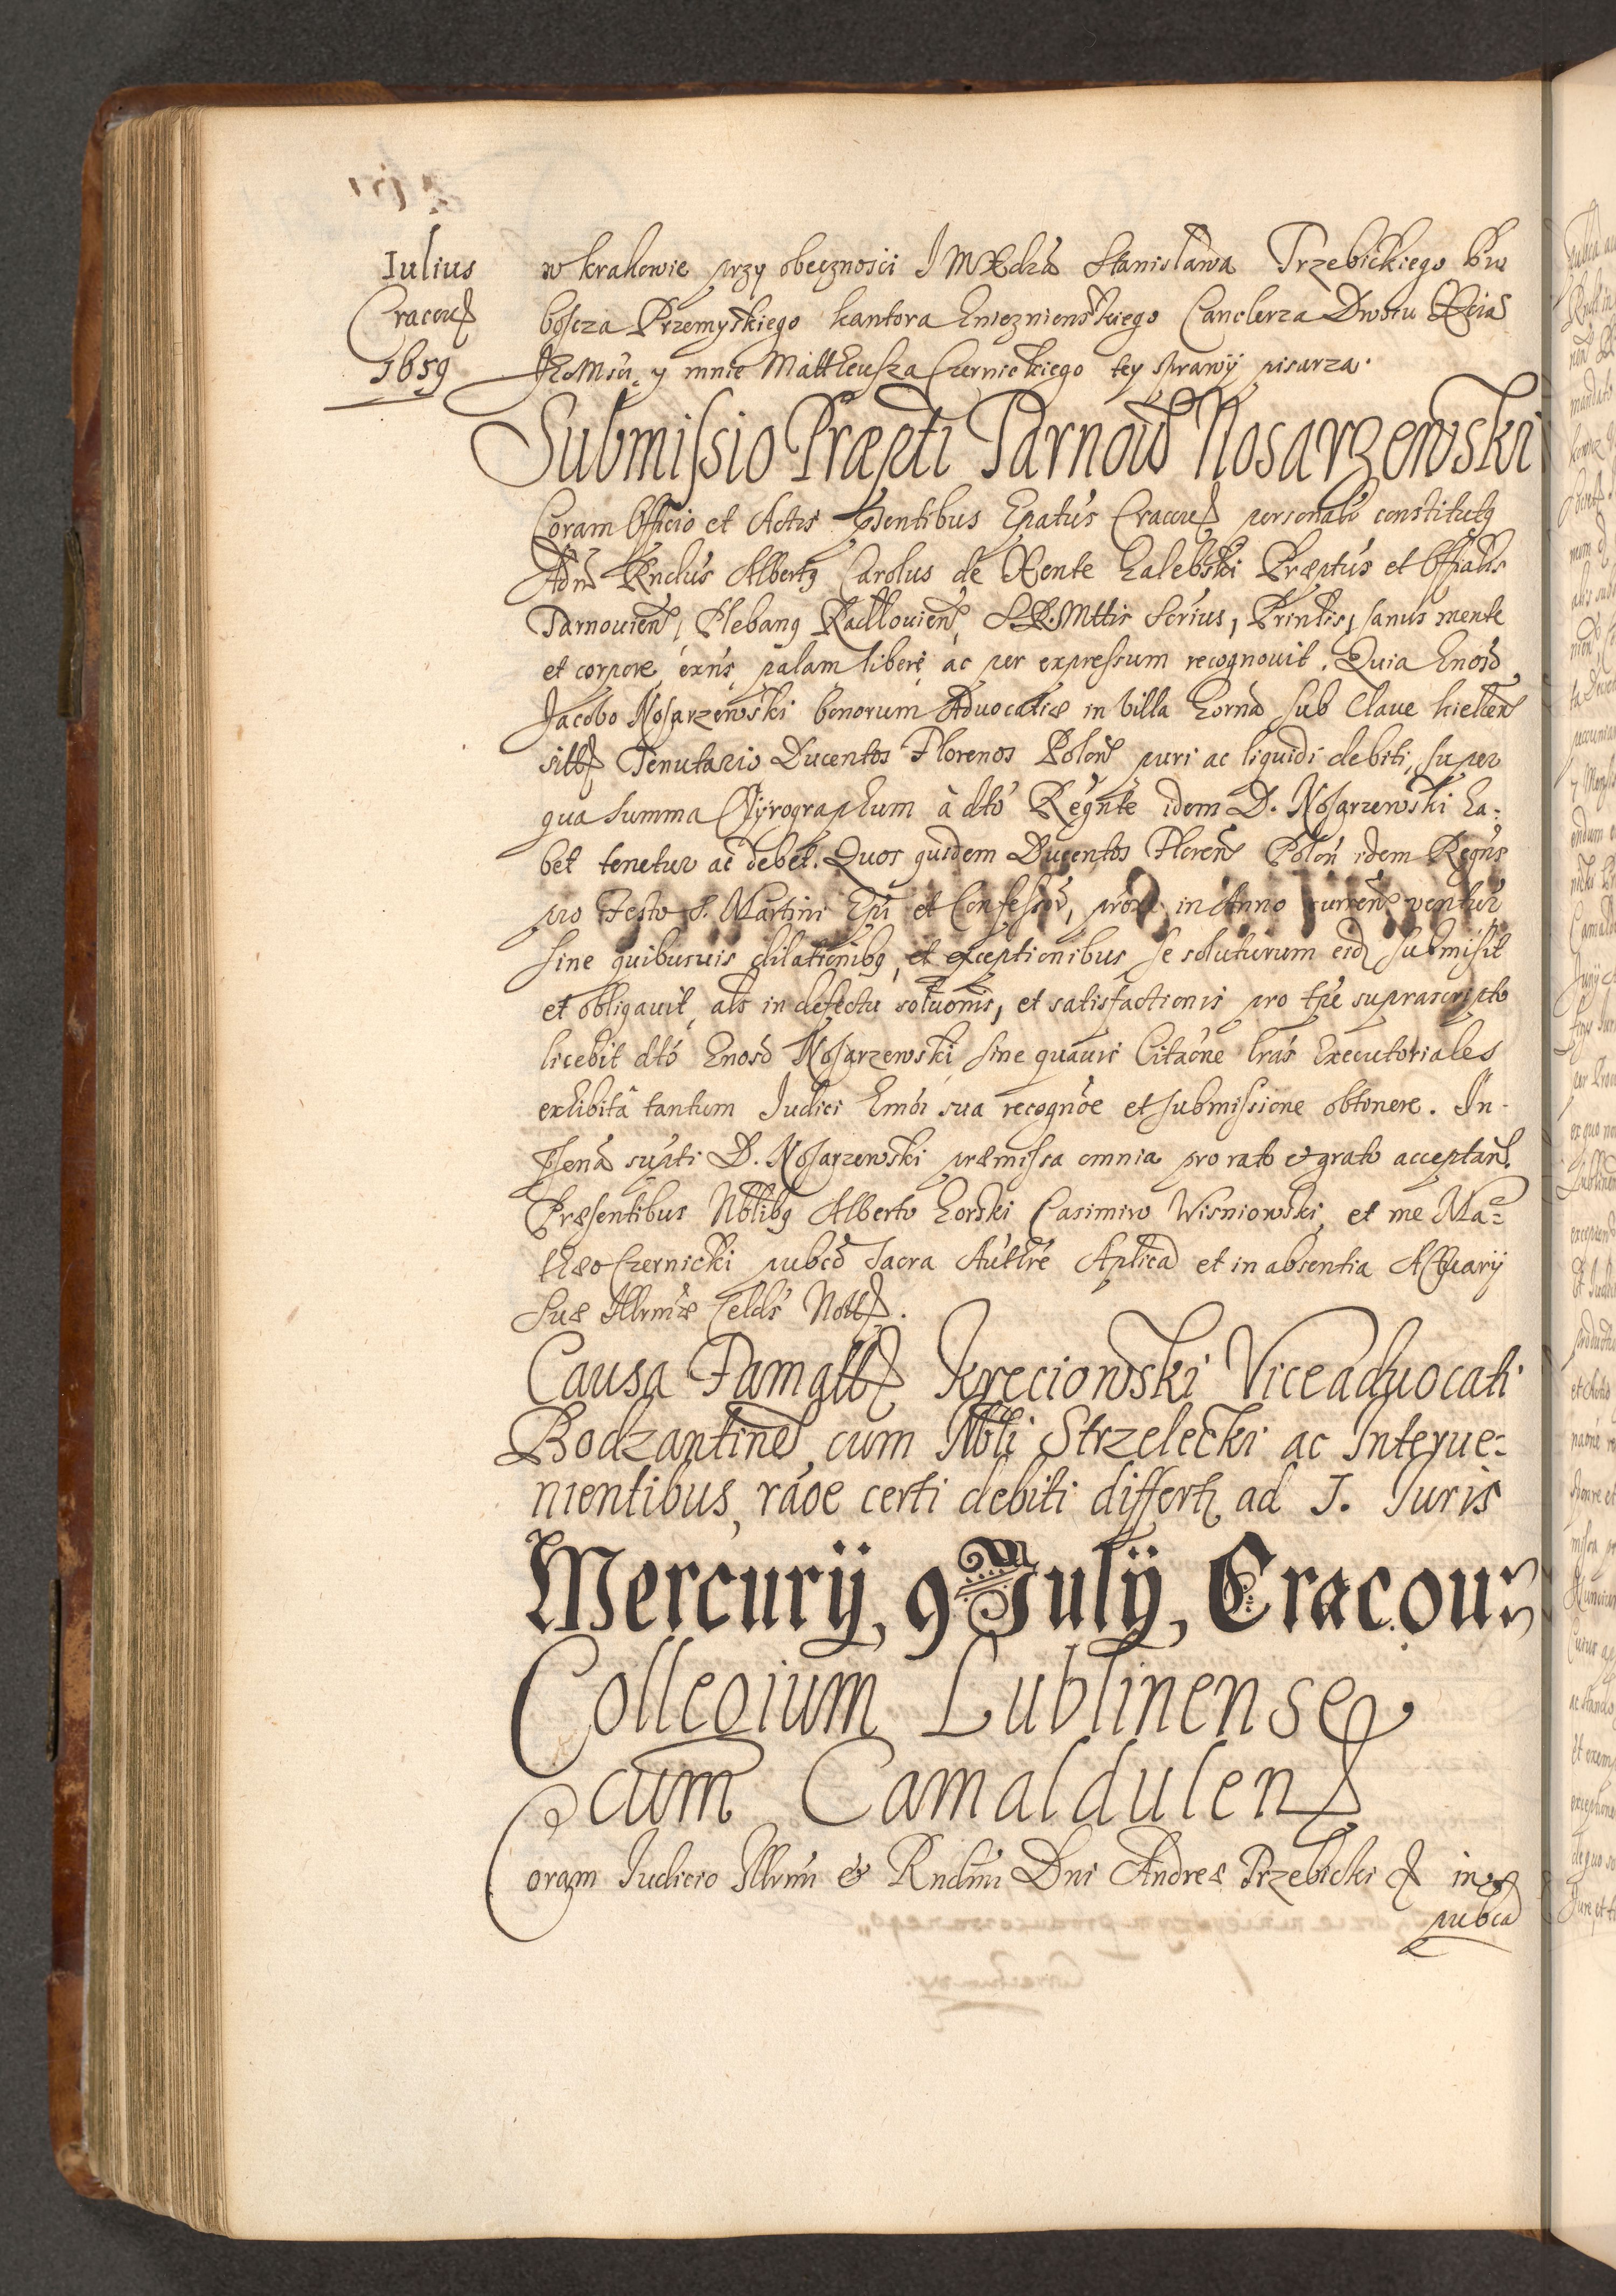 Iulius
Cracou
1659
w krakowie przy obecznosci J M Xdza Stanisława Trzebickiego Pro
boscza Przemyskiego kantora Gniezninskiego Canclerza Dworu
JeoMsci, y mnie Mattheusza Czernickiego tey sprawÿ pisarza.
Submissio Præpti Tarnow Nosarzewski
Coram Officio et Actis pñtibus Epatus Cracou personalr constitutq
Adm Rndus Albertq Carolus de Xente Zalebski Præptus et Offialis
Tarnouien, Plebanq Radlouien, S.R.Mttis Scrius, sanus mente
et corpore exñs, palam libere ac per expressum recognouit. Quia Gnoso
Jacobo Nosarzewski bonorum Aduocatiæ in Villa Gorno sub Claue kielcen
sitt Tenutario Ducentos Florenos Polon puri ac liquidi debiti, super
qua summa Chÿrographum à dto Regnte idem D. Nosarzewski ha-
bet tenetur ac debet. Quos quidem Ducentos Floren Polon idem Regns
pro Festo S. Martini Epi et Confessor, prox in Anno curren ventur
sine quibusuis dilationibq, et exceptionibus se soluturum eid submisit
et obligauit, als in defectu solutionis, et satisfactionis pro tpe suprascripto
licebit dto Gnoso Nosarzewski sine quauis Citaone lras Executoriales
exhibita tantum Judici Gmoi sua recognoe et submissione obtinere. In
psena supti D. Nosarzewski præmissa omnia pro rato et grato acceptan.
Præsentibus Nbtlibq Alberto Gorski Casimiro Wisniowski, et me Ma=
thæo Czernicki pubco Sacra Authre Aplica et in absentia Actuarÿ
Suæ Illrmæ Celdis Nott.
Causa Famatt Kreciowski Viceaduocati
Bodzantine, cum Nbli Strzelecki ac Interue=
nientibus, raoe certi debiti differt ad J. Iuris
Mercurÿ, 9 Julÿ, Cracou
Collegium Lublinense
cum Camaldulen
Coram Judicio Illrmi & Rndmi Dni Andreæ Trzebicki in
pubca